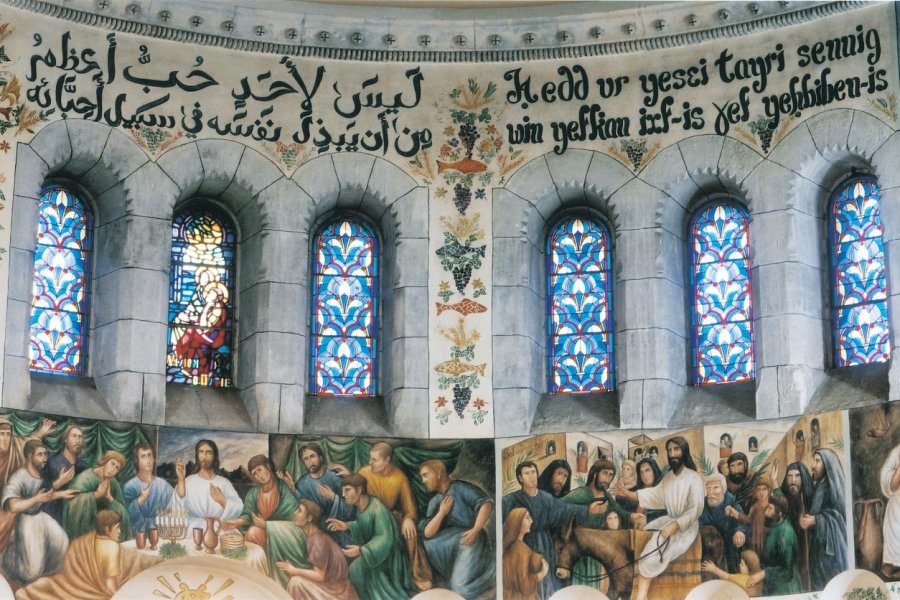 لَيسَ لأَحَدٍ حُبٌّ أَعظمُ
مِن أَن يَبذِلَ نفسَه في سبيل أحبَّائه
Ḥedd ur yesɛi tayri sennig
win yefkan ixf-is ɣef yeḥbiben-is